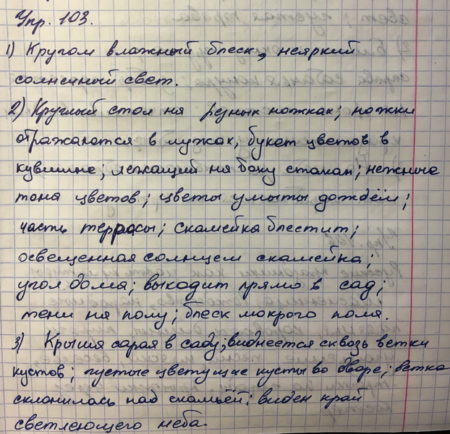 Упр. 103.
1) Кругом влажный блеск, неяркий
солнечный свет.
2) Круглый стол на резных ножках; ножки
отражаются в лужах, букет цветов в
кувшине; лежащий на боку стакан; нежные
тона цветов; цветы умыты дождём;
часть террасы; скамейка блестит;
освещенная солнцем скамейка;
угол дома; выходит прямо в сад;
тени на полу; блеск мокрого пола.
3) Крыша сарая в саду; виднеется сквозь ветки
кустов; пустые цветущие кусты во дворе; ветка
склонилась над скамьёй; виден край
светлеющего неба.